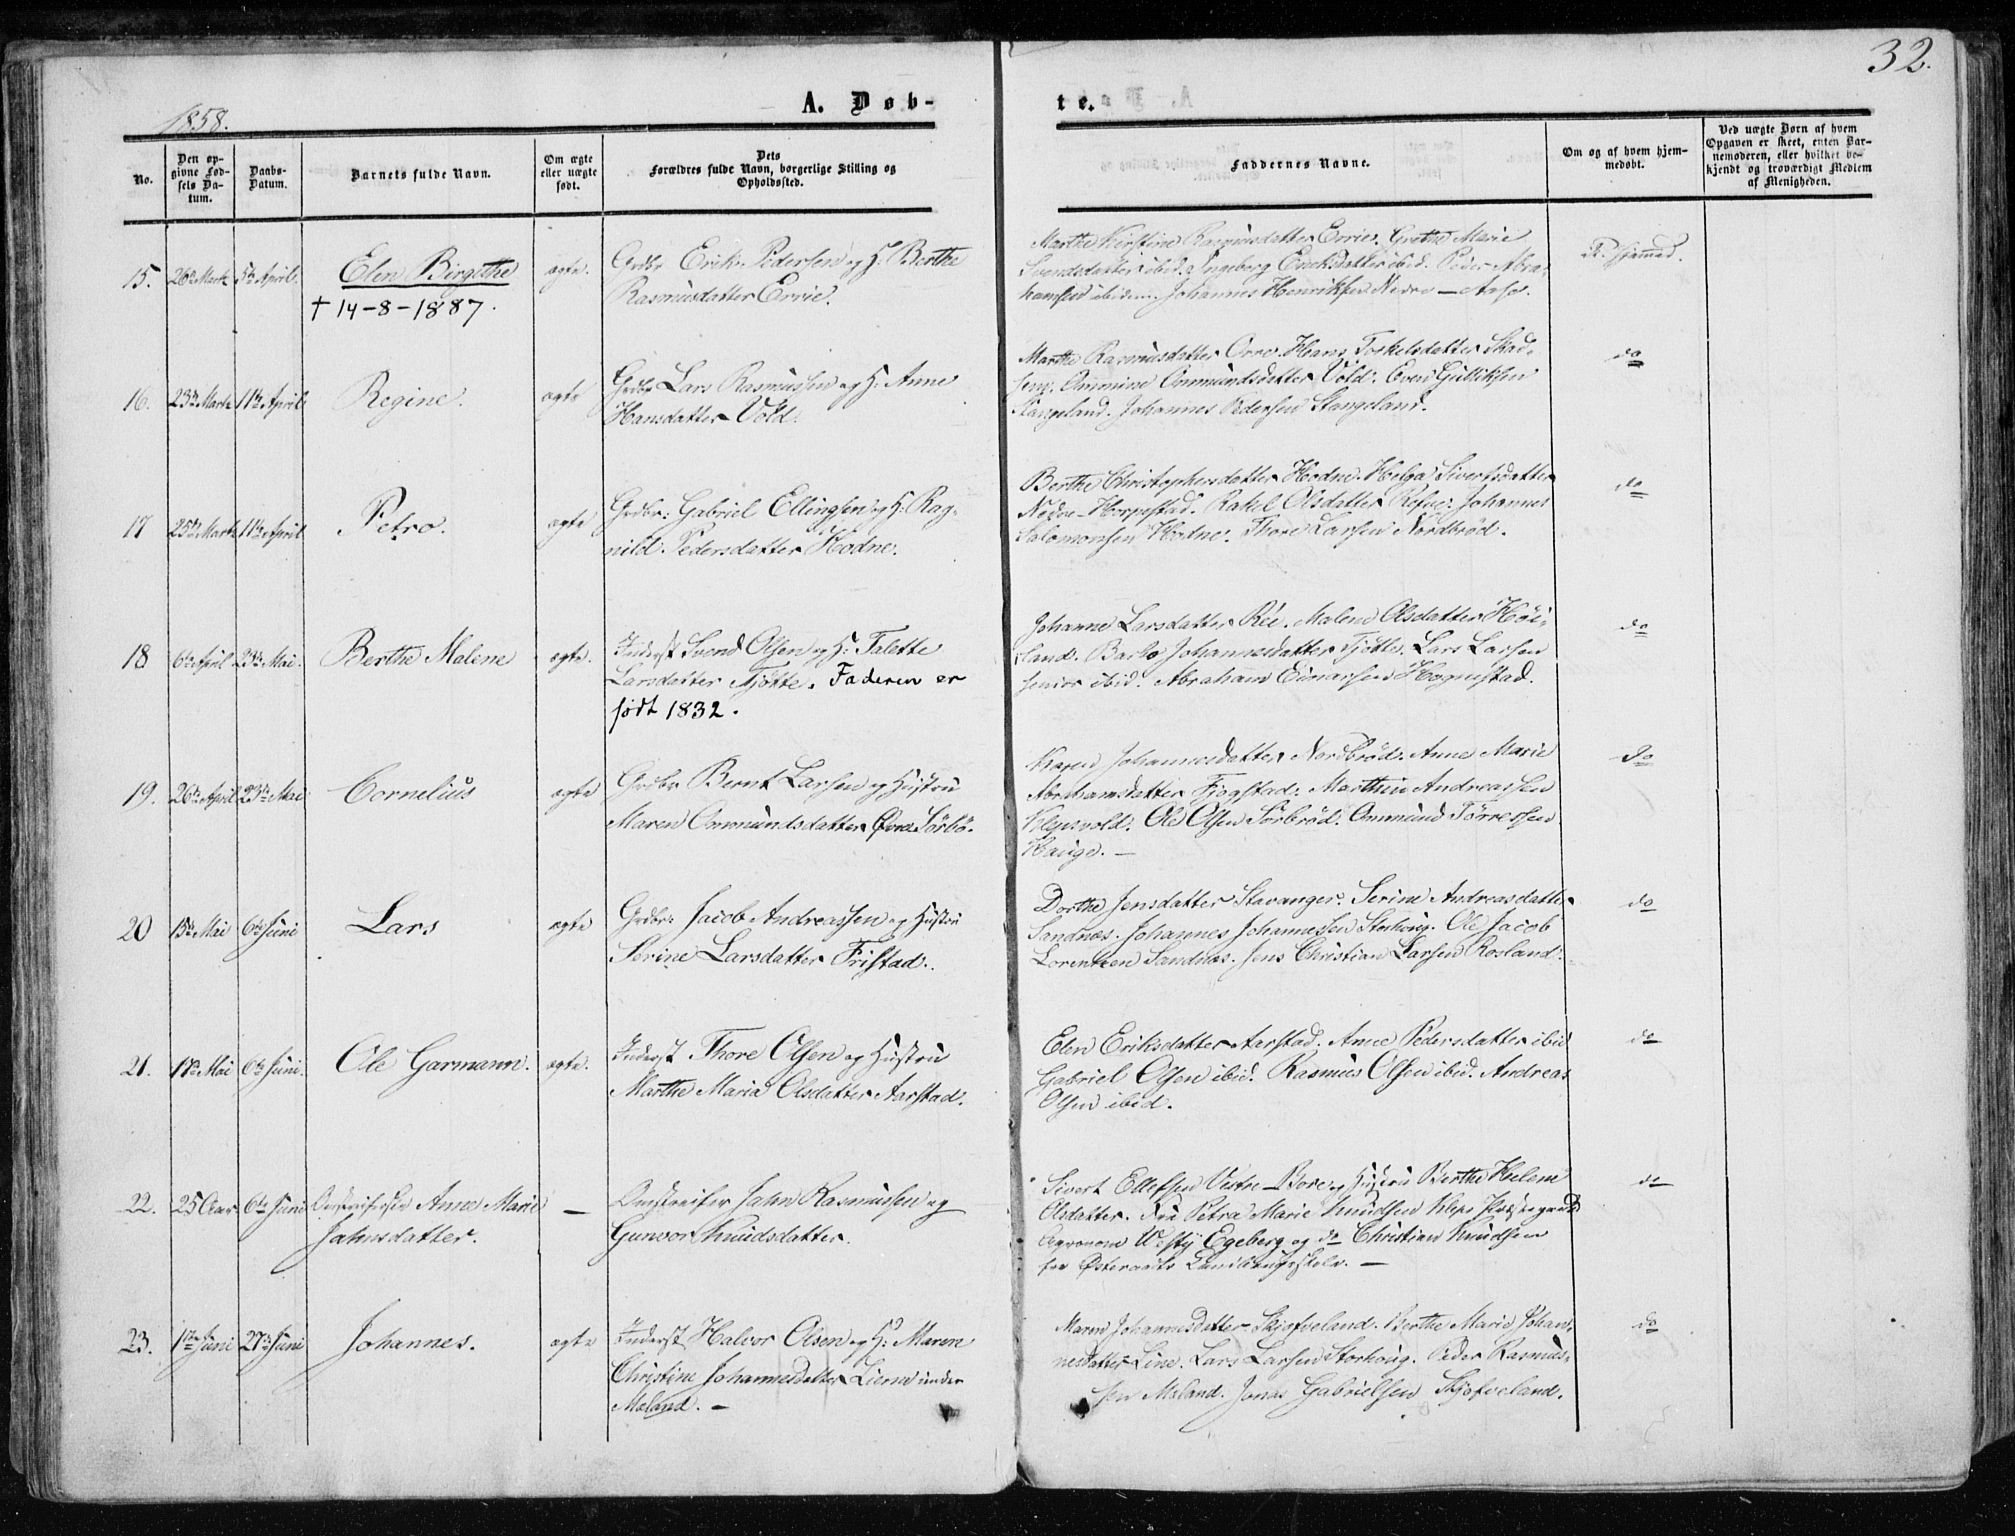 32.
1858.
A. Døb-
te.
No.
Den op-
givne Fød-
sels Da-
tum.
Daabs-
Datum.
Barnets fulde Navn.
Om ægte
eller uægte
født.
Dets
Forældres fulde Navn, borgerlige Stilling og
Opholdssted.
Faddernes Navne.
Om og af hvem hjem-
medøbt.
Ved uægte Børn af hvem
Opgaven er skeet, enten Bar-
nemoderen, eller hvilket be-
kjendt og troværdigt Medlem
af Menigheden.
15.
26de Marts
5te April.
Elen Birgithe
† 14-8-1887.
ægte.
Grdbr Erik Pedersen og H: Berthe
Rasmusdatter Errie.
Marthe Kirstine Rasmusdatter Errie. Grethe Marie
Svendsdatter ibid. Ingeborg Eriksdatter ibid. Peder Abra-
hamsen ibidem. Johannes Henriksen Nedre-Aase.
16.
23de Marts
11te April
Regine.
ægte
Grdbr Lars Rasmussen og H: Anne
Hansdatter Vold.
Marthe Rasmusdatter Orre. Hans Toskelsdatter Skad-
sem. Ommine Ommundsdatter Vold. Even Gulliksen
Stangeland. Johannes Pedersen Stangeland.
do
17
25de Marts
11te April
Petro.
ægte
Grdbr: Gabriel Ellingsen og H: Rag-
nild Pedersdatter Hodne.
Berthe Christophersdatter Hodne. Helga Sivertsdatter
Nedre-Horpestad. Rakel Olsdatter Refve. Johannes
Salomonsen Hodne. Thore Larsen Nordbrød.
do
18
6te April
23de Mai.
Berthe Malene
ægte.
Inderst Svend Olsen og H: Talette
Larsdatter Tjøtte. Faderen er
født 1832.
Johanne Larsdatter Rée. Malene Olsdatter Høi-
land. Barbo Johannesdatter Tjøtte. Lars Larsen
senior ibid. Abraham Einarsen Hognestad.
do
19.
26de April
23de Mai
Cornelius
ægte
Grdbr Bernt Larsen og Hustru
Maren Ommundsdatter Øvre Sørbø.
Karen Johannesdatter Nordbrød. Anne Marie
Abrahamsdatter Fjogstad. Marthin Andreassen
Klepsvold. Ole Olsen Sørbrød. Ommund Tørressen
Hauge. —
do
20
15de Mai
6te Juni
Lars
ægte
Grdbr: Jacob Andreassen og Hustru
Serine Larsdatter Fristad.
Dorthe Jensdatter Stavanger. Serine Andreasdatter
Sandnæs. Johannes Johannessen Storhoug. Ole Jacob
Lorentzen Sandnæs. Jens Christian Larsen Rosland.
do
21.
17de Mai
6te Juni.
Ole Garmann.
ægte.
Inderst Thore Olsen og Hustru
Marthe Maria Olsdatter Aarstad.
Elen Eriksdatter Aarstad. Anne Pedersdatter ibid
Gabriel Olsen ibid. Rasmus Olsen ibid. Andreas
Olsen ibid.
do
22.
25 Aar
6te Juni
Omstreiferske Anne Marie
Jahnsdatter.
—
Omstreifer Jahn Rasmussen og
Gunvor Knudsdatter.
Sivert Ellefsen Vestre-Bore og Hustru Berthe Helene
Olsdatter. Fru Petra Marie Knudsen Klep Præstegaard
Agronom Westÿ Egeberg og do Christian Knudsen
fra Østeraads Landbrugsskole. —
do
23.
1ste Juni
27de Juni
Johannes.
ægte
Inderst Halvor Olsen og H: Maren
Christine Johannesdatter Lierne under
Mæland. —
Maren Johannesdatter Skjæfveland. Berthe Marie Johan-
nesdatter Line. Lars Larsen Storhoug. Peder Rasmus-
sen Mæland. Jonas Gabrielsen Skjæfveland.
do